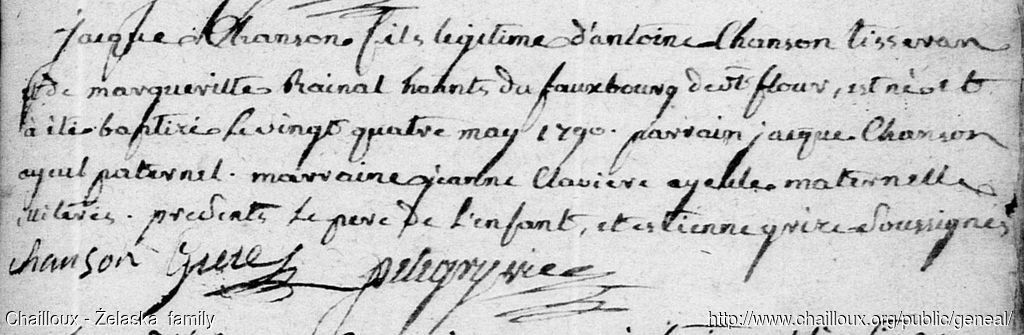 jacque Chanson fils legitime d'antoine Chanson tisseran
et de margueritte Rainal habnts du fauxbourg de st flour, est né et
à été baptizé le vingt quatre may 1790. parrain jacque Chanson
ayeul paternel. marraine jeanne Claviere ayeule maternelle
illiterés. presents le pere de l'enfant, et estienne grize soussignés
chanson Grize
Chailloux - Želaska family
http://www.chailloux.org/public/geneal/